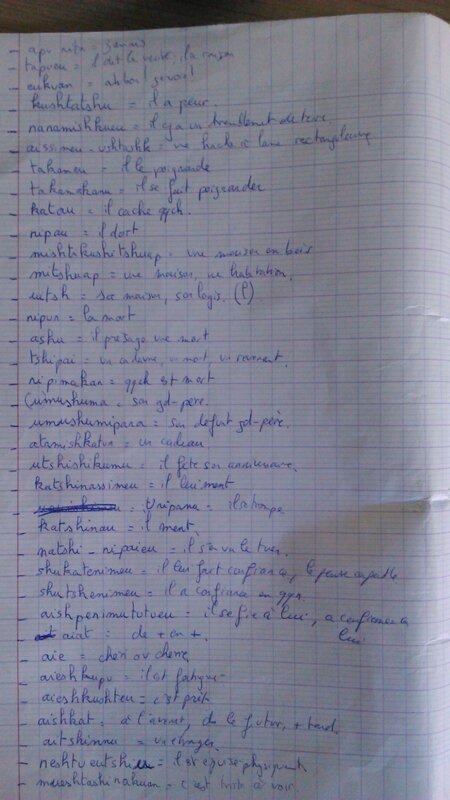 - apu nita = jamais
- tapueu = il dit la vérité, il a raison
- eukuan = ah bon! ça va!
- kushtatshu = il a peur.
- nanamishkueu = il y a un tremblement de terre
- aissimeu-ushtashk = une hache à lame rectangulaire
- takameu = il le poignarde
- takamakanu = il se fait poignarder
- katau = il cache qqch.
- nipau = il dort
- mishtikushitshuap = une maison en bois
- mitshuap = une maison, une habitation.
- uitsh = sa maison, son logis. (l)
- nipun = la mort
- asku = il présage une mort
- tshipai = un cadavre, un mort, un revenant.
- nipimakan = qqch est mort
- (umushuma = son gd-père.
- umushumipana = son défunt gd-père.
- atamishkatun = un cadeau.
- utshishikumu = il fête son anniversaire.
- katshinassimeu = il lui ment
- = Unipanu = il se trompe
- katshinau = il ment.
- natshi-nipaieu = il s'en va le tuer.
- shukatenimeu = il leur fait confiance, le pense capable
- shutshenimeu = il a confiance en qqn.
- aishpenimututueu = il se fie à lui, a confiance en lui
- aiat = de + en +.
- aie = chéri ou chérie
- aieshkupu = il est fatigué
- aieshkushteu = c'est prêt
- aishkat = à l'avenir, ds le futur, + tard.
- autshinnu = un étranger.
- neshtueutshiu = il est épuisé physiquement
- mueshtashinakuan = c'est triste à voir.